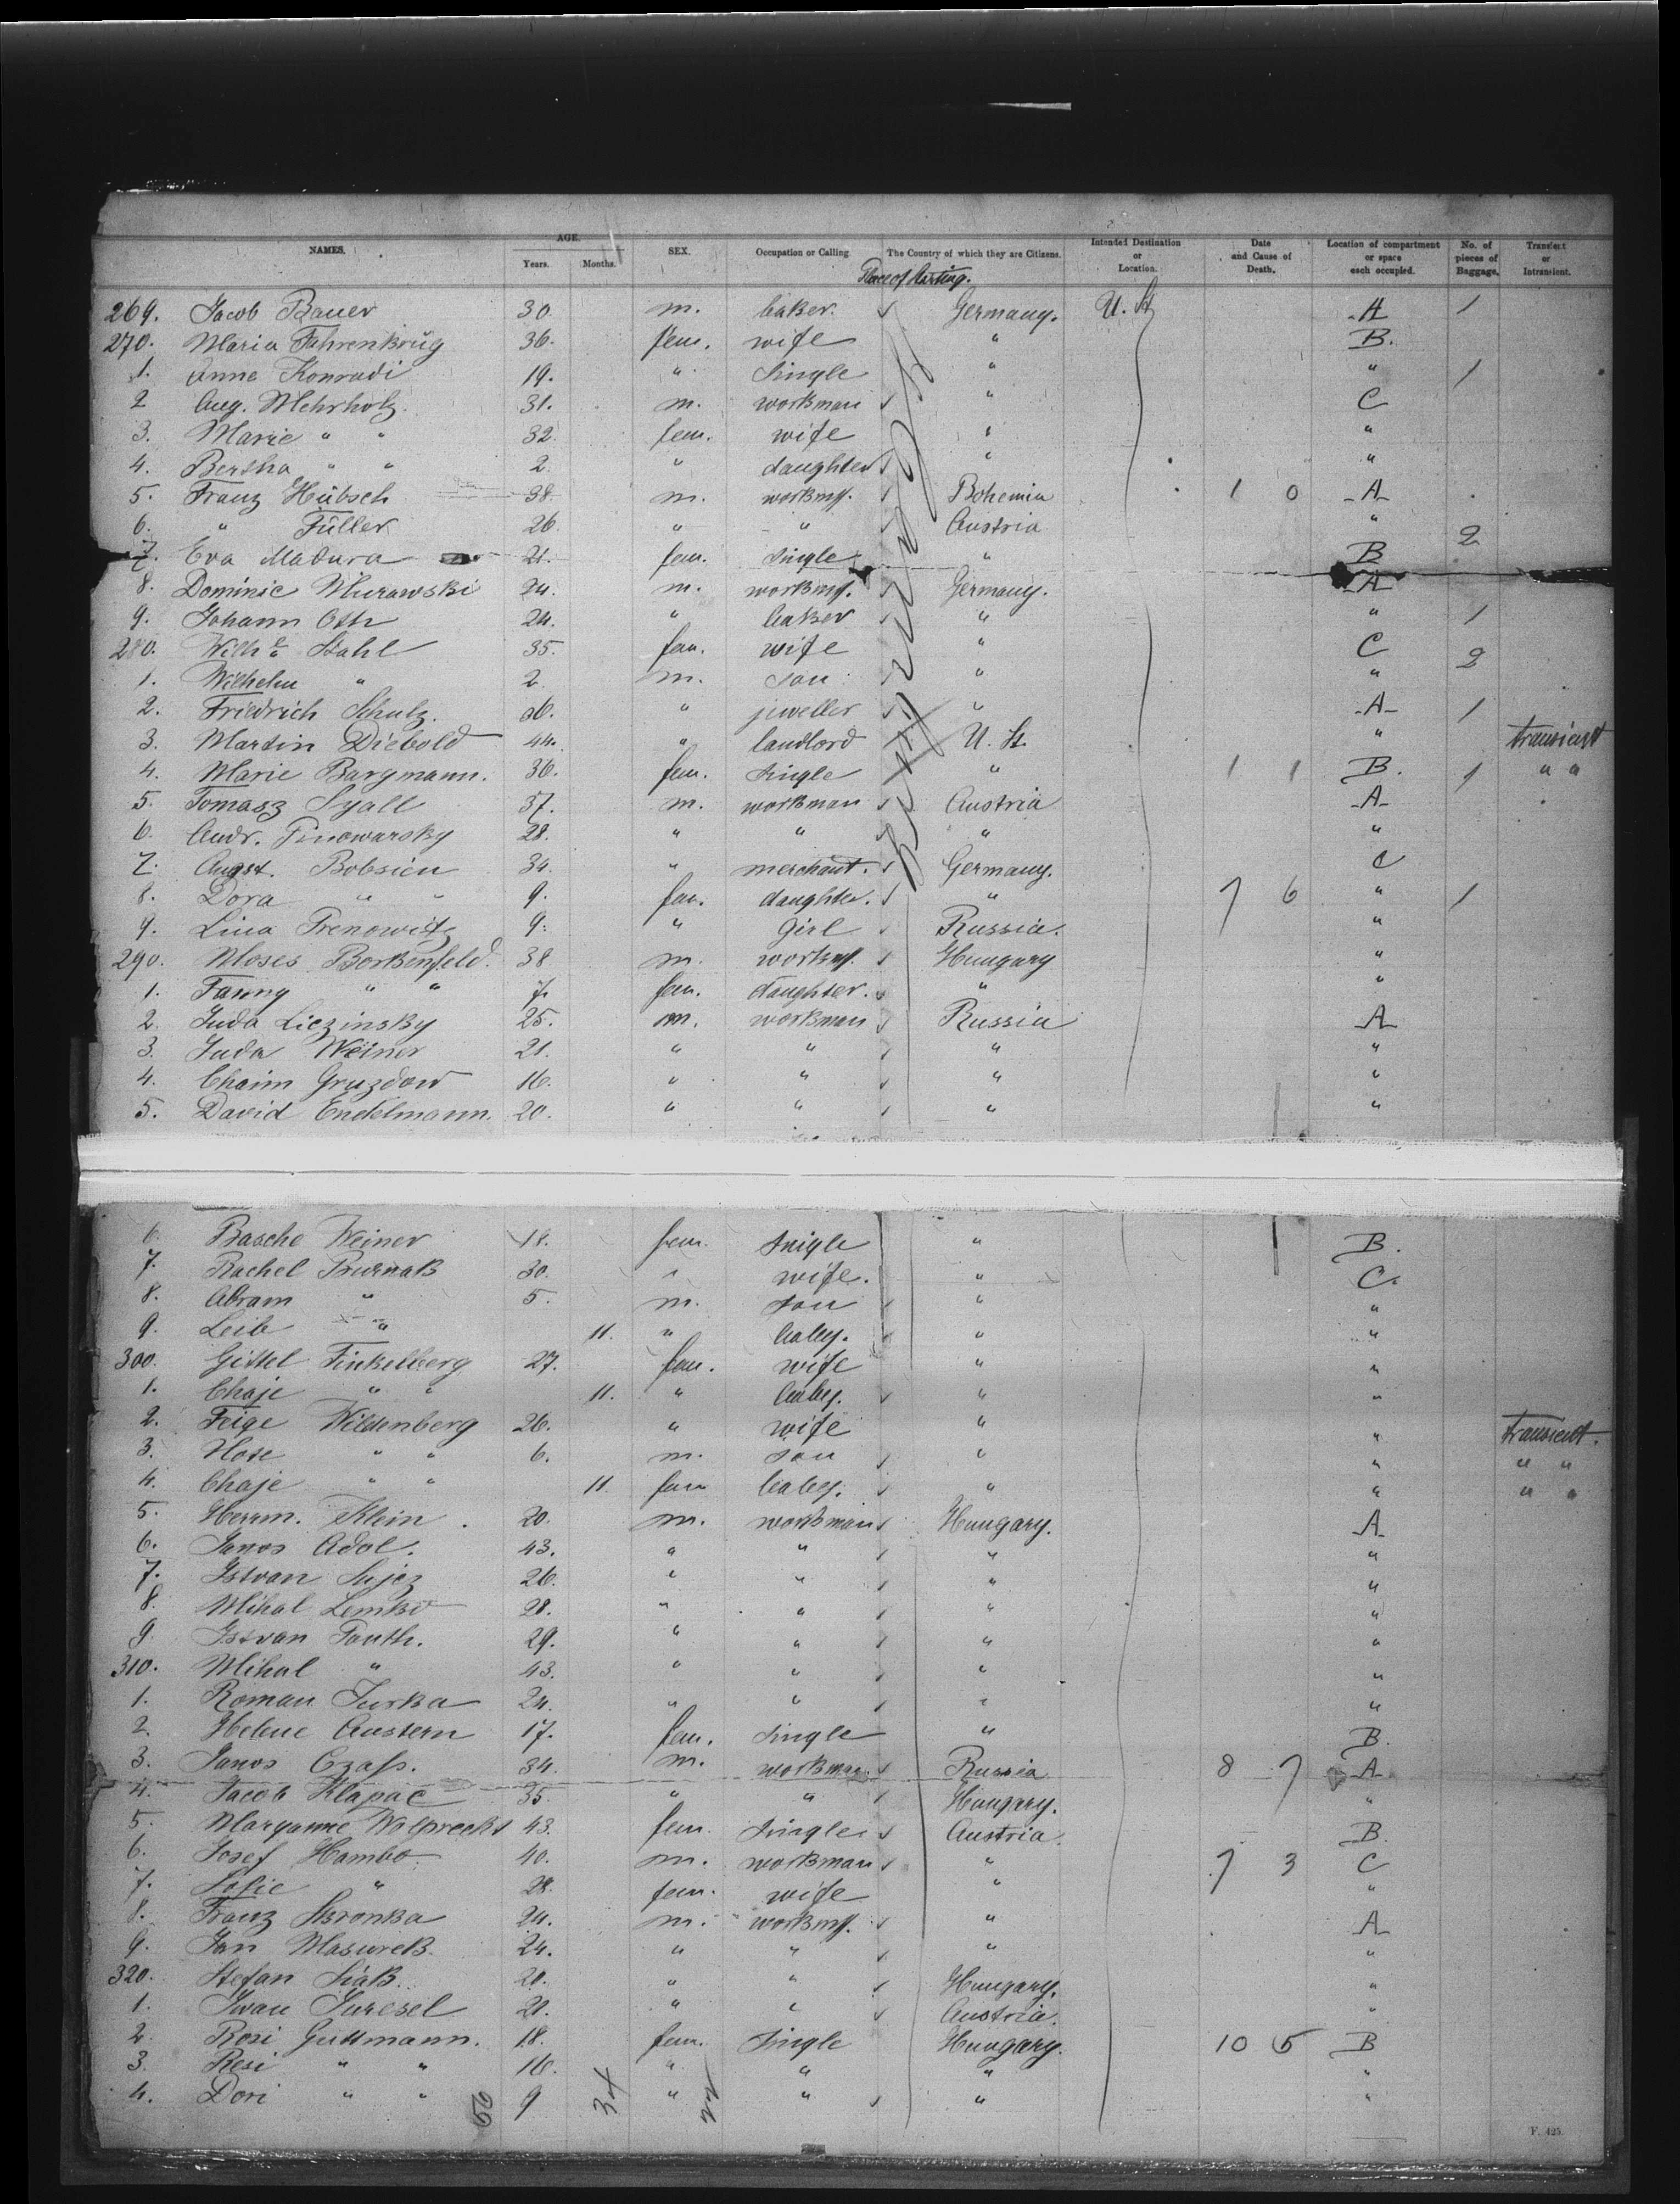 NAMES. AGE. Years. Months. SEX. Occupation or Calling The Country of which they are Citizens. Intended Destination or Location. Date and Cause of Death. Location of compartment or space each occupied. No. of pieces of Baggage. Transient or Intransient.
Place of Starting.
269. Jacob Bauer 30. m. baker. Germany. U. St A 1
270. Maria Fahrenkrüg 36. fem. wife " B.
1. Anne Konradi 19. " single " " 1
2 Aug. Mehrholz. 31. m. workman " C
3. Marie " " 32. fem. wife " "
4. Bertha " " 2. " daughter " "
5. Franz Hübsch 38. m. workm. Bohemia 1 0 A
6. " Füller 26. " " Austria " 2
7. Eva Madura 21. fem. single " B
8. Dominic Murawski 24. m. workm. Germany. A
9. Johann Oth 24. " baker " " 1
280. Wilh. Stahl 35. fem. wife " C 2
1. Wilhelm " 2. m. son " "
2. Friedrich Schulz. 36. " jeweller " A 1
3. Martin Diebold 44. " landlord U. St. " transient
4. Marie Bargmann. 36. fem. single " 1 1 B. 1 " "
5. Tomasz Syall 37. m. workman Austria A
6. Andr. Pinowarsky 28. " " " "
7. August. Bobsien 34. " merchant. Germany. C
8. Dora " " 9. fem. daughter. " 7 6 " 1
9. Lina Trenowitz 9. " girl Russia. "
290. Moses Borkenfeld. 38 m. workm. Hungary "
1. Fanny " " 7. fem. daughter. " "
2. Juda Liczinsky 25. m. workman Russia A
3. Juda Weiner 21. " " " "
4. Chaim Gruzdow 16. " " " "
5. David Endelmann. 20. " " " "
6. Basche Weiner 18. fem. single " B.
7. Rachel Burnak 30. " wife. " C.
8. Abram " 5. m. son " "
9. Leib " 11. " baby. " "
300. Gittel Finkelberg 27. fem. wife " "
1. Chaje " " 11. " baby. " "
2. Feige Wildenberg 26. " wife " " transient.
3. Hose " " 6. m. son " " " "
4. Chaje " " 11. fem baby. " " " "
5. Herrm. Klein. 20. m. workman Hungary. A
6. Janos Adol. 43. " " " "
7. Istvan Sujez 26. " " " "
8. Mihal Lemko 28. " " " "
9. Istvan Panth. 29. " " " "
310. Mihal " 43. " " " "
1. Roman Jurka 24. " " " "
2. Helene Austern 17. fem. single " B.
3. Janos Czass. 34. m. workman. Russia 8 7 A
4. Jacob Klapac 35. " " Hungary. "
5. Maryanne Wolprecht 43. fem. single Austria. B.
6. Josef Hambo 40. m. workman " 7 3 C
7. Sofie " 28. fem. wife " "
8. Franz Skronka 24. m. workm. " A
9. Jan Masurek. 24. " " " "
320. Stefan Siak. 20. " " Hungary. "
1. Iwan Juresel 21. " " Austria. "
2. Rosi Guttmann. 18. fem. single Hungary. 10 5 B
3. Resi " " 16. " " " "
4. Dori " " 9 " " " "
34
22
F. 425.